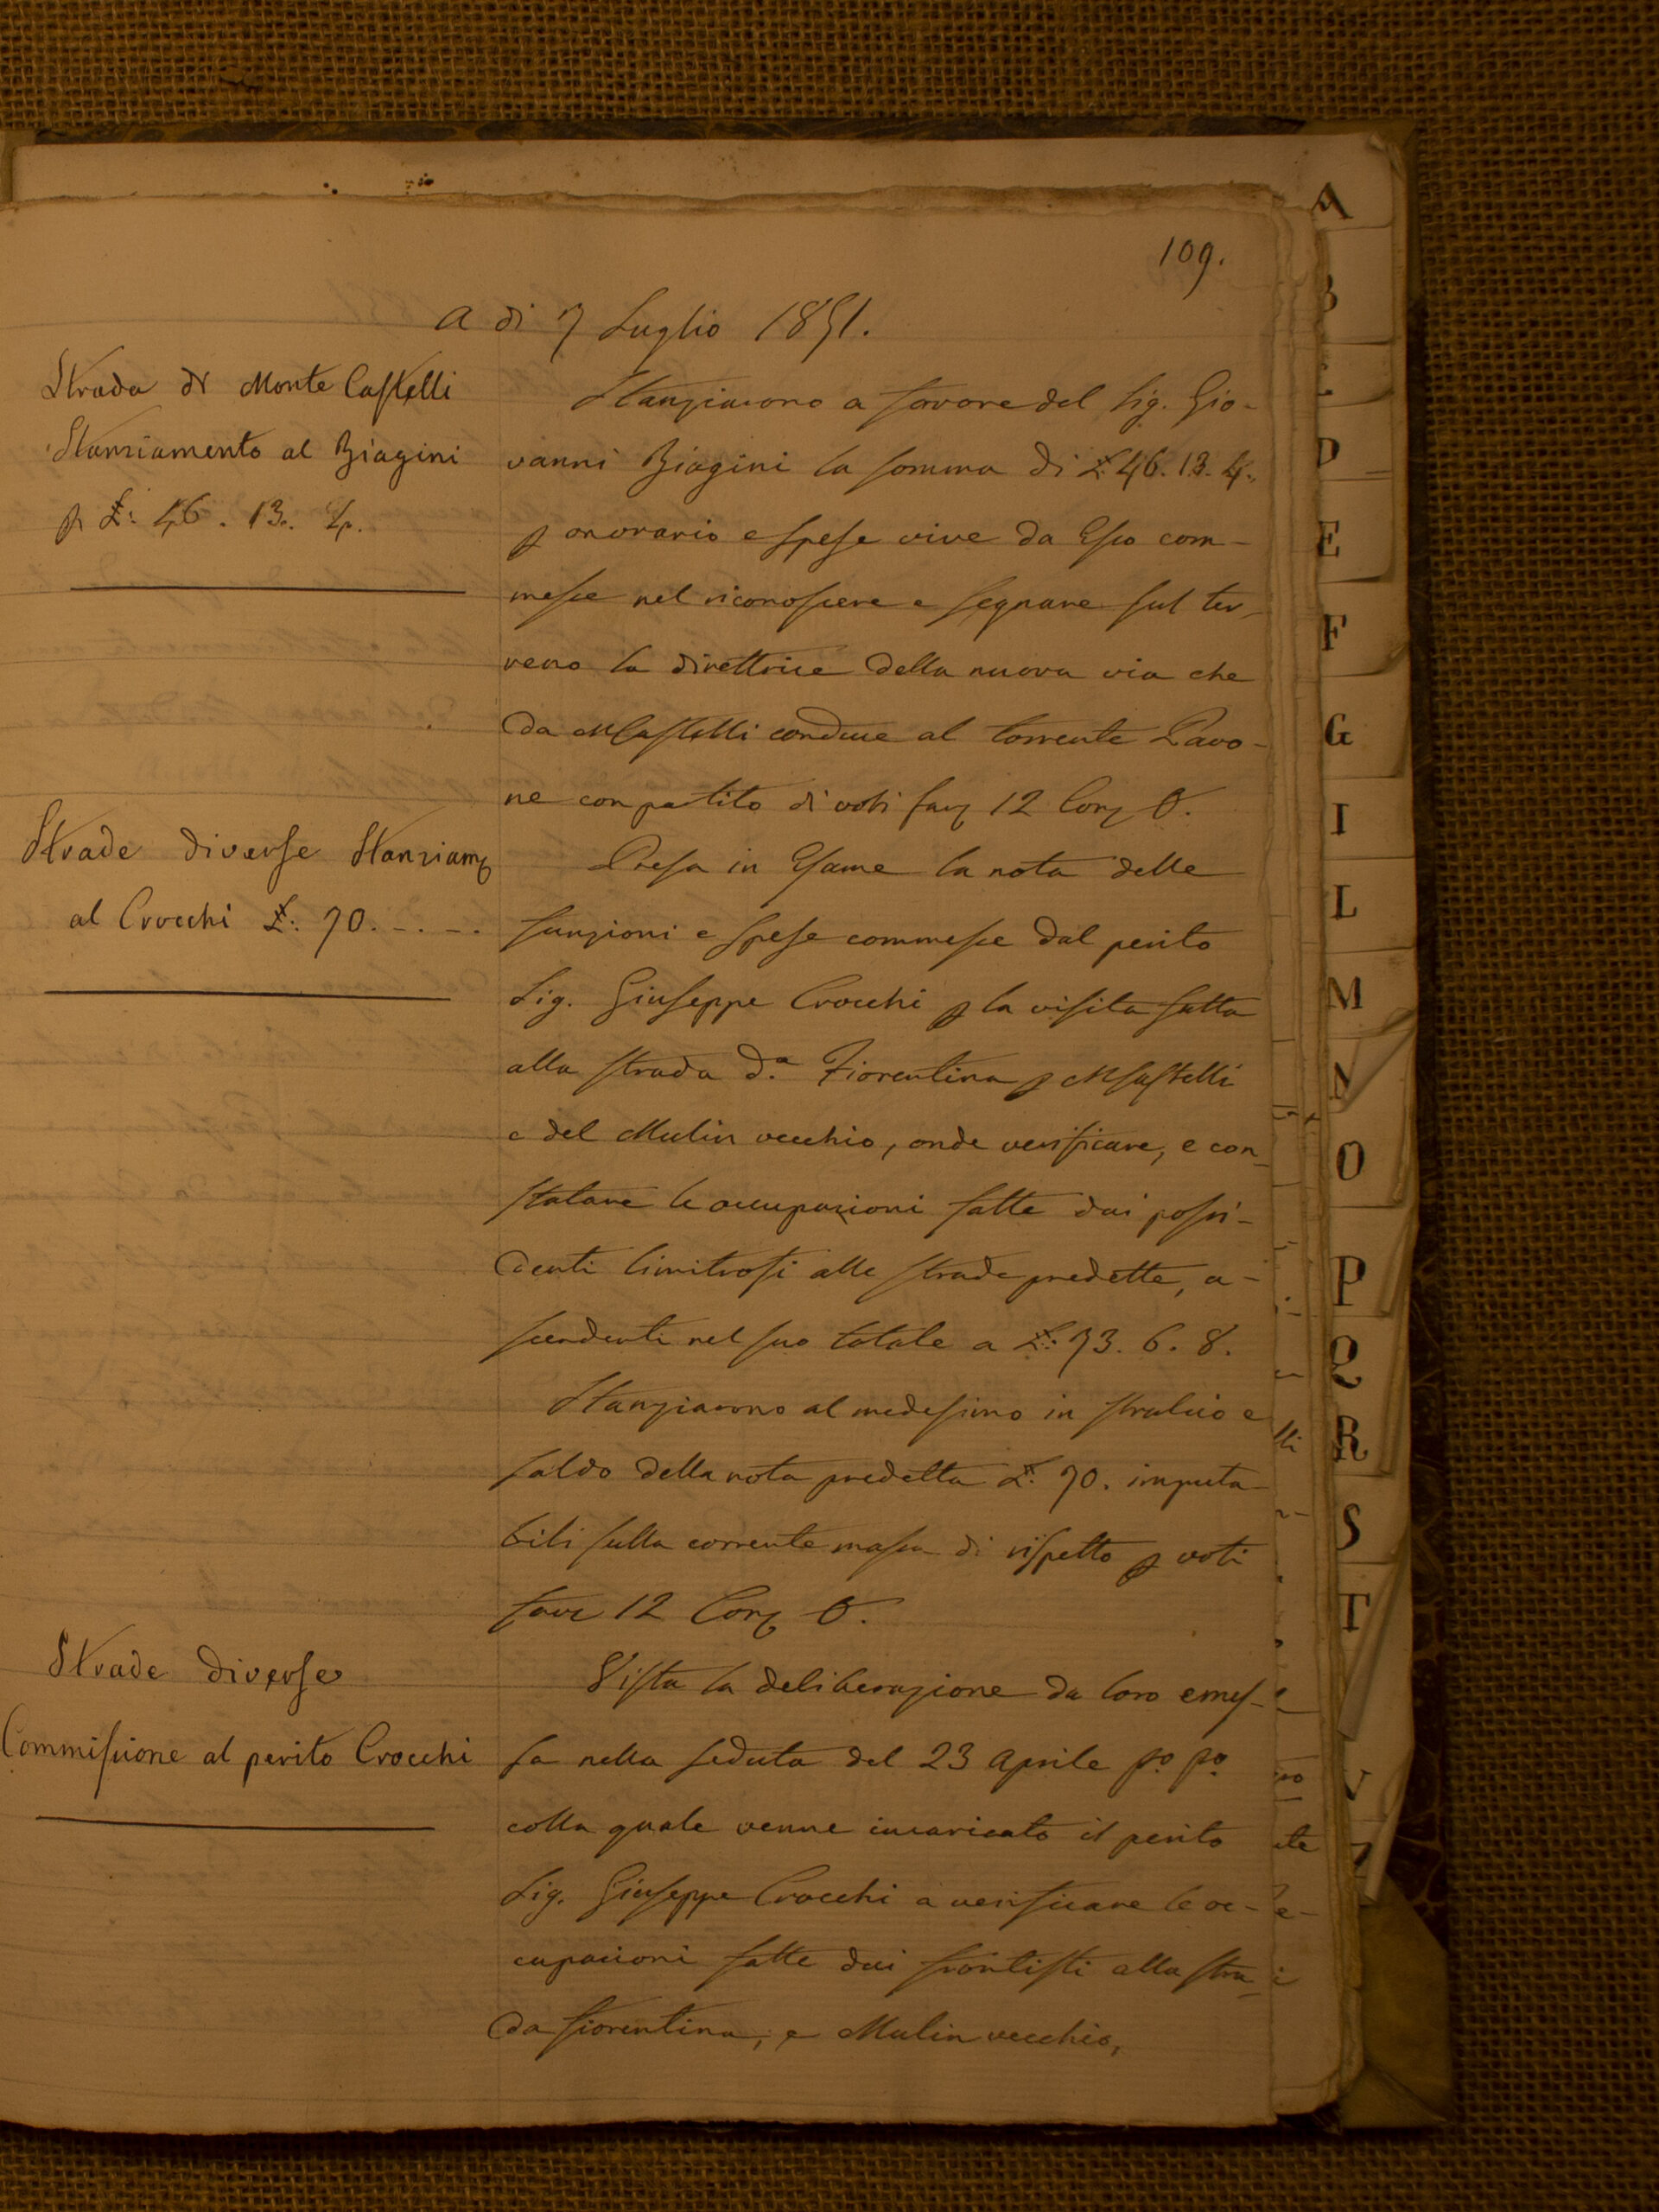 109.
A di 7 Luglio 1851.
Strada di Monte Castelli
Stanziamento al Biagini
p £: 46. 13. 4.
Stanziarono a favore del Sig. Gio-
vanni Biagini la somma di £: 46. 13. 4.
p onorario e spese vive da Esso com-
messe nel riconoscere e segnare sul ter-
reno la direttrice della nuova via che
da MCastelli conduce al torrente Pavo-
ne con partito di voti fav 12 Con 0.
Strade diverse Stanziam
al Crocchi £: 70. -. -.
Presa in Esame la nota delle
funzioni e spese commesse dal perito
Sig. Giuseppe Crocchi p la visita fatta
alla strada d.a Fiorentina p MCastelli
e del Mulin vecchio, onde verificare, e con-
statare le occupazioni fatte dai possi-
denti limitrofi alle strade predette, a-
scendenti nel suo totale a £: 73. 6. 8.
Stanziarono al medesimo in stralcio e
saldo della nota predetta £: 70. imputa-
bili sulla corrente massa di rispetto p voti
fav 12 Con 0.
Strade diverse
Commissione al perito Crocchi
Vista la deliberazione da loro emes-
sa nella seduta del 23 Aprile p.o p.o
colla quale venne incaricato il perito
Sig. Giuseppe Crocchi a verificare le oc-
cupazioni fatte dai frontisti alla stra-
da fiorentina, e Mulin vecchio,
A
B
C
D
E
F
G
I
L
M
N
O
P
Q
R
S
T
V
Z